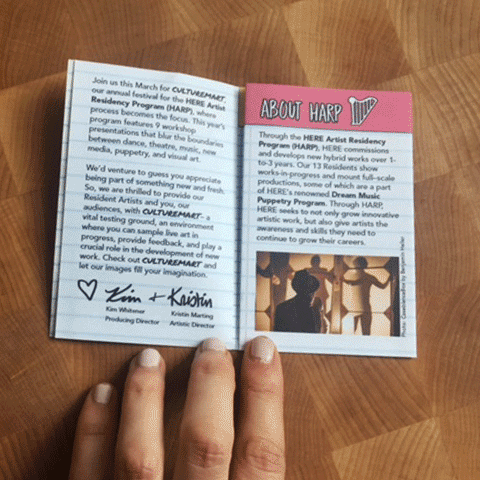 Join us this March for CULTUREMART,
our annual festival for the HERE Artist
Residency Program (HARP), where
process becomes the focus. This year's
program features 9 workshop
presentations that blur the boundaries
between dance, theatre, music, new
media, puppetry, and visual art.
We'd venture to guess you appreciate
being part of something new and fresh.
So, we are thrilled to provide our
Resident Artists and you, our
audiences, with CULTUREMART– a
vital testing ground, an environment
where you can sample live art in
progress, provide feedback, and play a
crucial role in the development of new
work. Check out CULTUREMART and
let our images fill your imagination.
Kim + Kristin
Kim Whitener
Producing Director
Kristin Marting
Artistic Director
ABOUT HARP
Through the HERE Artist Residency
Program (HARP), HERE commissions
and develops new hybrid works over 1-
to-3 years. Our 13 Residents show
works-in-progress and mount full-scale
productions, some of which are a part
of HERE's renowned Dream Music
Puppetry Program. Through HARP,
HERE seeks to not only grow innovative
artistic work, but also give artists the
awareness and skills they need to
continue to grow their careers.
Photo: by Benjamin Heller